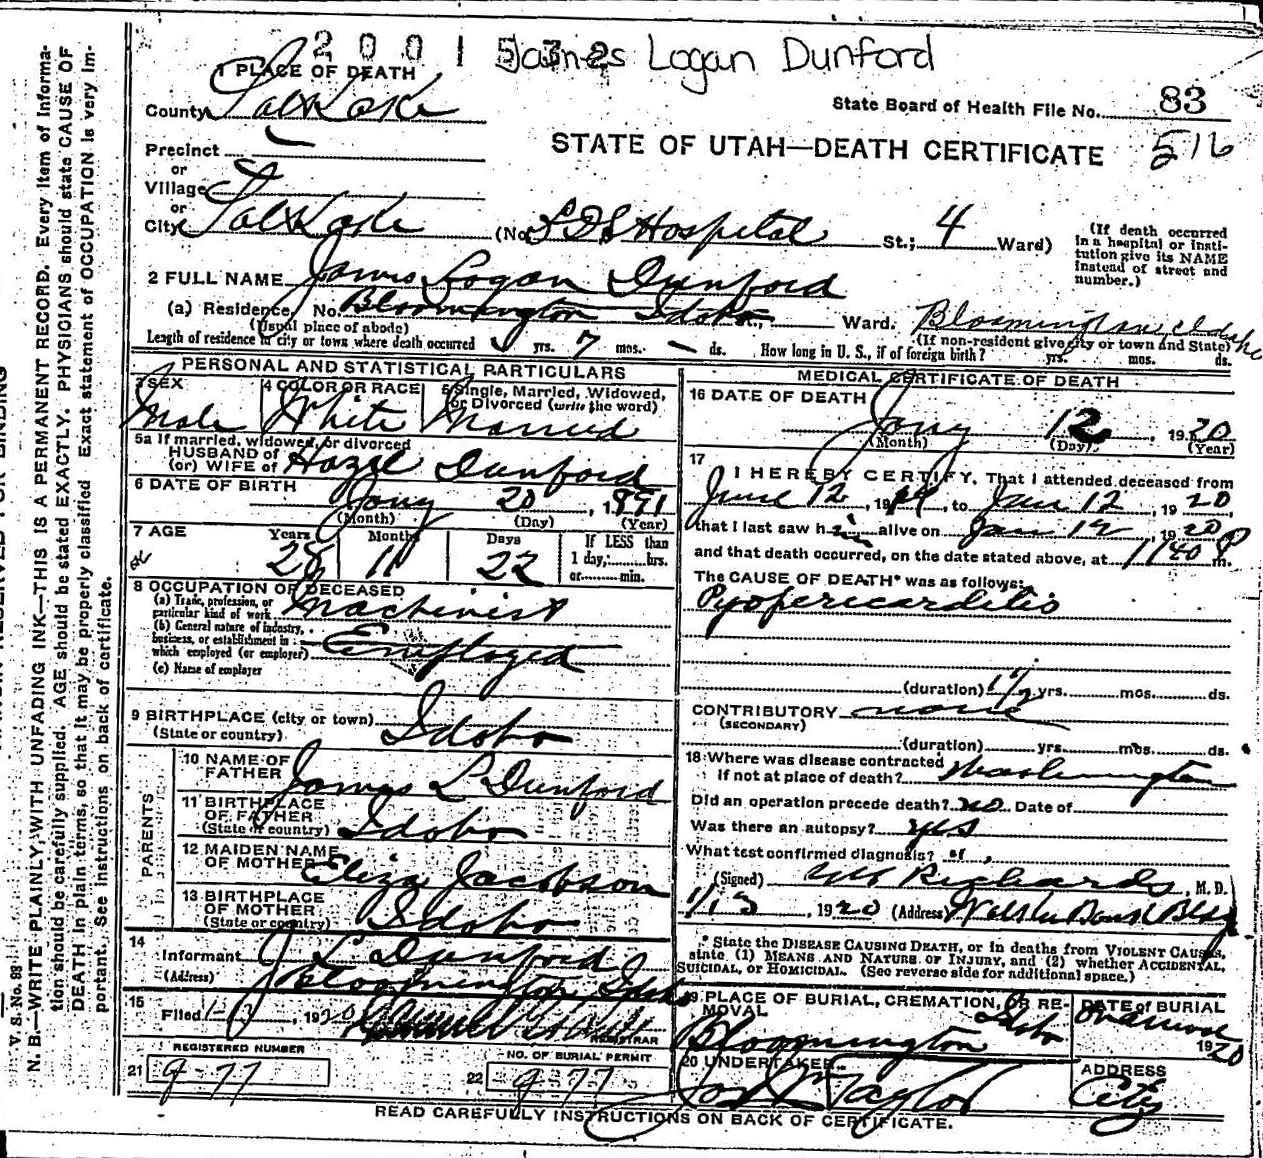 2001532 James Logan Dunford
1 PLACE OF DEATH
County Salt Lake
State Board of Health File No. 83
516
STATE OF UTAH—DEATH CERTIFICATE
Precinct
or
Village
or
City Salt Lake (No. LDS Hospital St.; 4 Ward)
(If death occurred in a hospital or institution give its NAME instead of street and number.)
2 FULL NAME James Logan Dunford
(a) Residence, No. Bloomington Idaho St., Ward. Bloomington Idaho
(Usual place of abode) (If non-resident give city or town and State)
Length of residence in city or town where death occurred yrs. 7 mos. – ds. How long in U. S., if of foreign birth? yrs. mos. ds.
PERSONAL AND STATISTICAL PARTICULARS
3 SEX Male
4 COLOR OR RACE White
5 Single, Married, Widowed, or Divorced (write the word) Married
5a If married, widowed, or divorced
HUSBAND of
(or) WIFE of Hazel Dunford
6 DATE OF BIRTH Jany 20, 1891
(Month) (Day) (Year)
7 AGE Years 28 Months 11 Days 22 If LESS than 1 day, hrs. or min.
8 OCCUPATION OF DECEASED
(a) Trade, profession, or particular kind of work Machinist
(b) General nature of industry, business, or establishment in which employed (or employer) Employed
(c) Name of employer
9 BIRTHPLACE (city or town)
(State or country) Idaho
PARENTS
10 NAME OF FATHER James L Dunford
11 BIRTHPLACE OF FATHER (State or country) Idaho
12 MAIDEN NAME OF MOTHER Eliza Jacobson
13 BIRTHPLACE OF MOTHER (State or country) Idaho
14 Informant J L Dunford
(Address) Bloomington Idaho
15 Filed 1-13, 1920
REGISTRAR
REGISTERED NUMBER
21 9-77
NO. OF BURIAL PERMIT
22 977
MEDICAL CERTIFICATE OF DEATH
16 DATE OF DEATH Jany 12, 1920
(Month) (Day) (Year)
17 I HEREBY CERTIFY, That I attended deceased from
June 12, 1919, to Jan 12, 1920,
that I last saw him alive on Jan 12, 1920
and that death occurred, on the date stated above, at 1140 P m.
The CAUSE OF DEATH* was as follows:
Pyopericarditis
(duration) 1 1/2 yrs. mos. ds.
CONTRIBUTORY none
(SECONDARY)
(duration) yrs. mos. ds.
18 Where was disease contracted
If not at place of death? Washington
Did an operation precede death? no Date of
Was there an autopsy? yes
What test confirmed diagnosis?
(Signed) Richards, M. D.
1/13, 1920 (Address) Bank Bldg
* State the DISEASE CAUSING DEATH, or in deaths from VIOLENT CAUSES, state (1) MEANS AND NATURE OF INJURY, and (2) whether ACCIDENTAL, SUICIDAL, or HOMICIDAL. (See reverse side for additional space.)
19 PLACE OF BURIAL, CREMATION, OR REMOVAL Bloomington Idaho
DATE of BURIAL 1920
20 UNDERTAKER Jos Taylor
ADDRESS City
READ CAREFULLY INSTRUCTIONS ON BACK OF CERTIFICATE.
V. S. No. 88
N. B.—WRITE PLAINLY, WITH UNFADING INK—THIS IS A PERMANENT RECORD. Every item of information should be carefully supplied. AGE should be stated EXACTLY. PHYSICIANS should state CAUSE OF DEATH in plain terms, so that it may be properly classified. Exact statement of OCCUPATION is very important. See instructions on back of certificate.